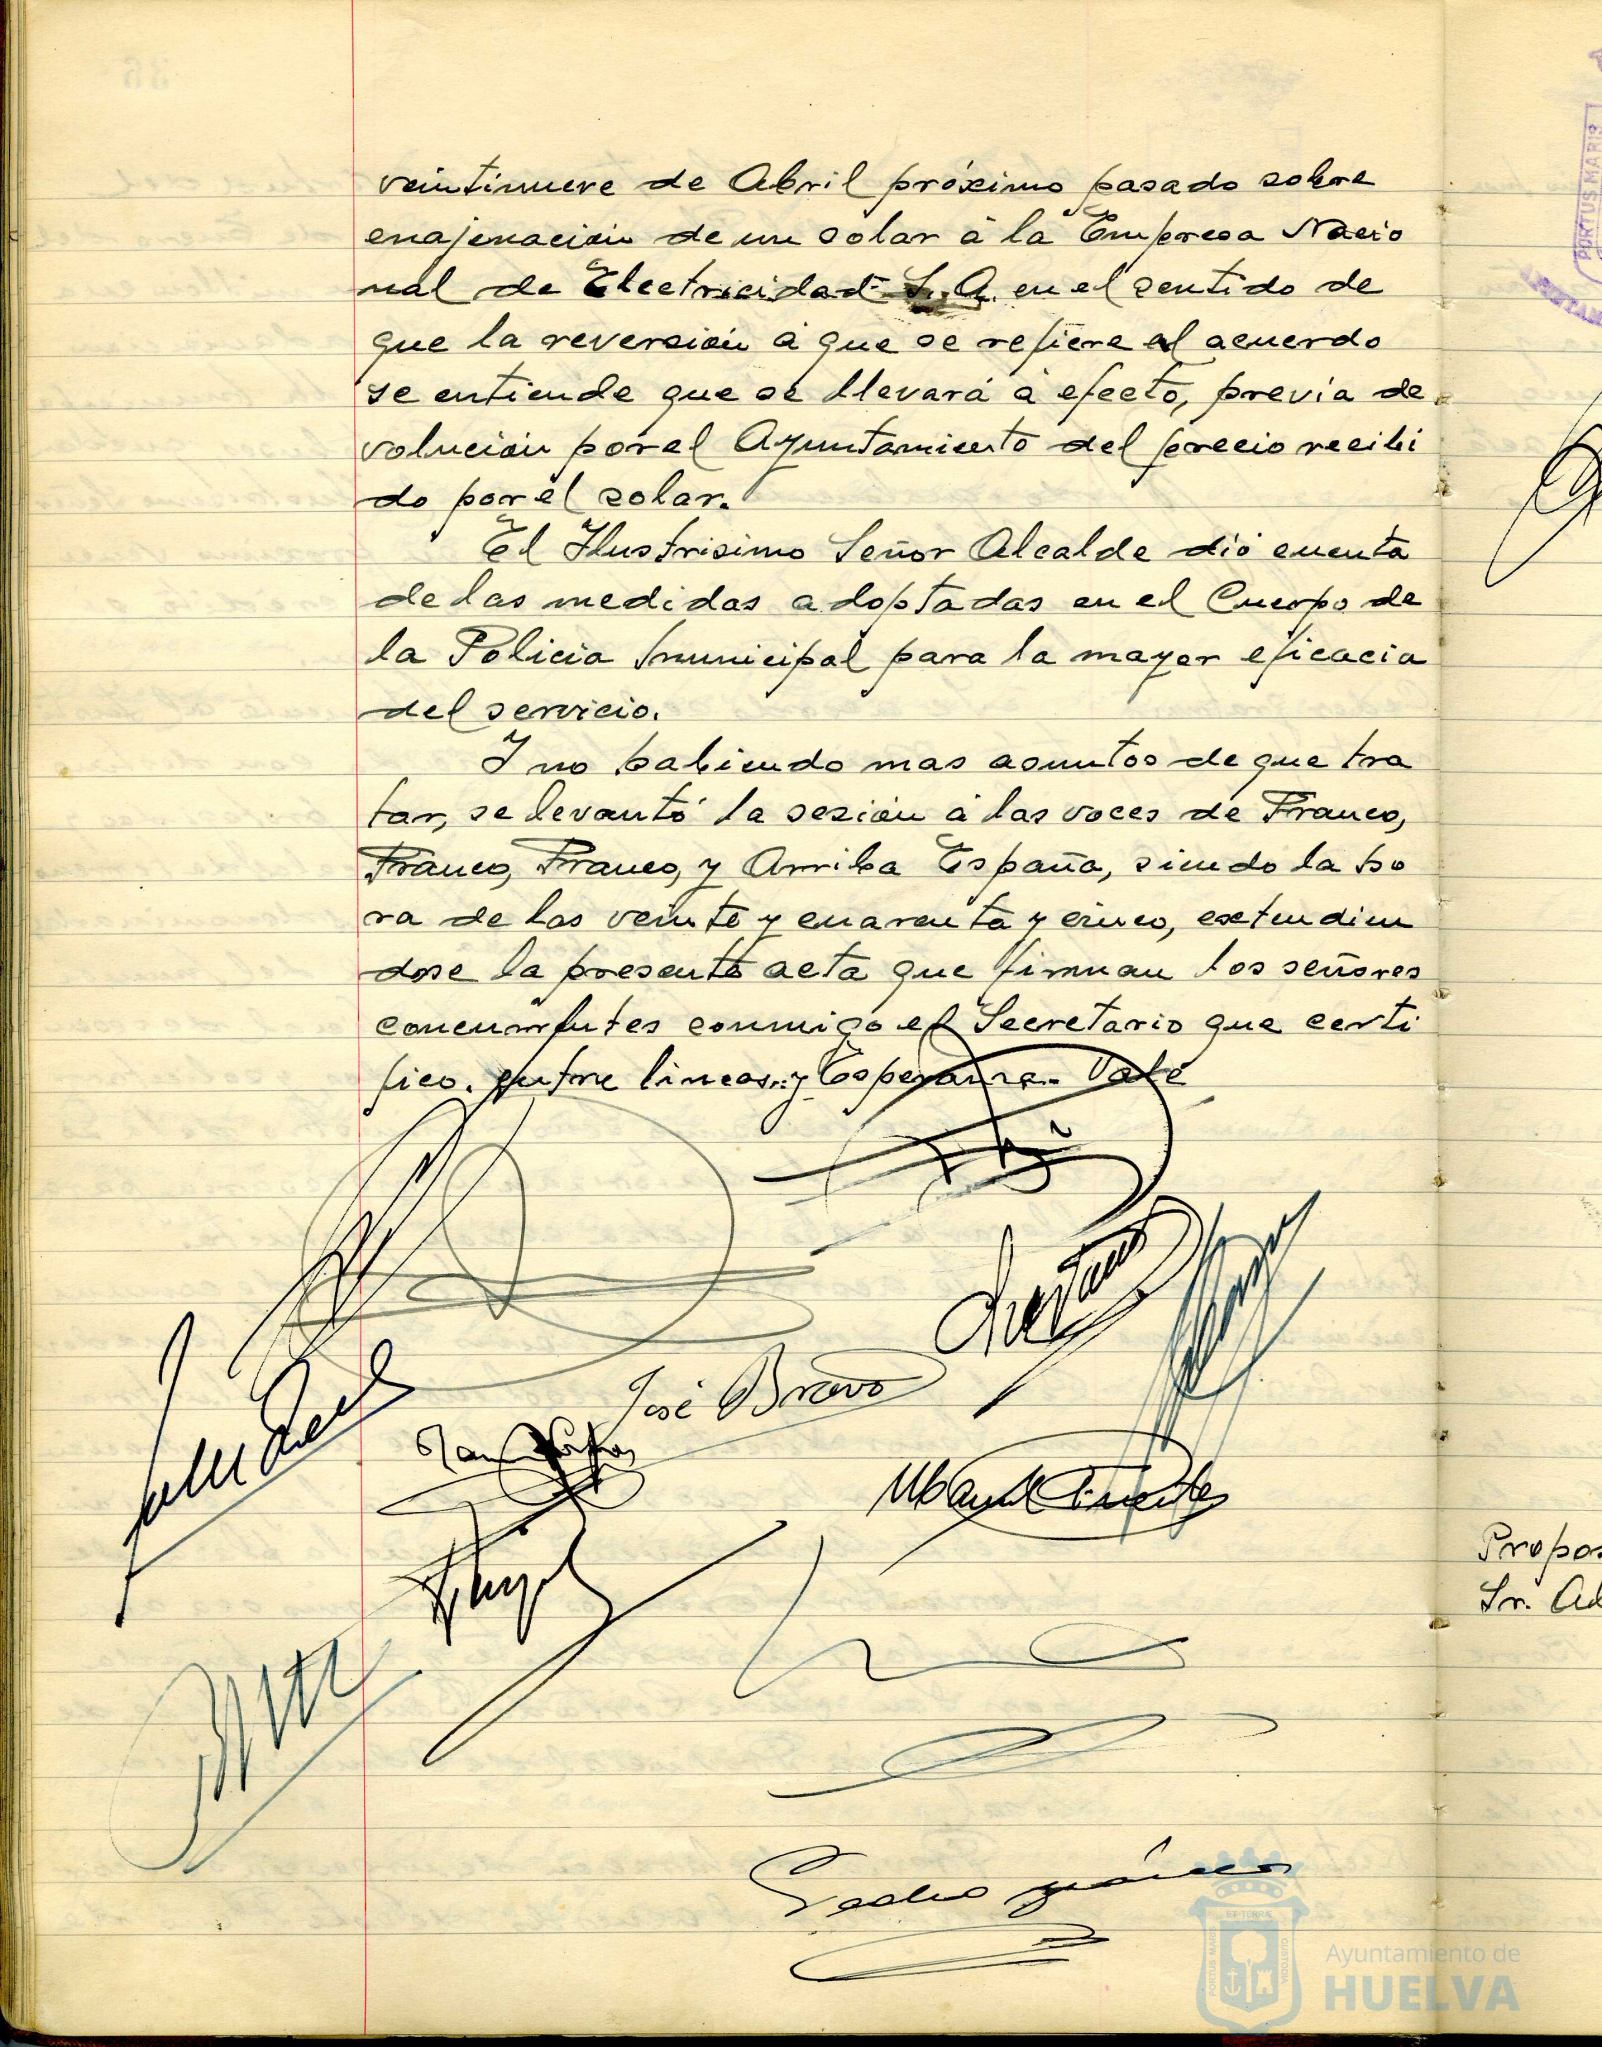 veintinueve de Abril próximo pasado sobre
enajenación de un solar á la Empresa Nacio
nal de Electricidad S. A. en el sentido de
que la reversión á que se refiere el acuerdo
se entiende que se llevará á efecto, previa de
volución por el Ayuntamiento del precio recibi
do por el solar.
El Ilustrisimo Señor Alcalde dió cuenta
de las medidas adoptadas en el Cuerpo de
la Policia Municipal para la mayor eficacia
del servicio.
Y no habiendo mas asuntos de que tra
tar, se levantó la sesión á las voces de Franco,
Franco, Franco, y Arriba España, siendo la ho
ra de las veinte y cuarenta y cinco, extendien
dose la presente acta que firman los señores
concurrentes conmigo el Secretario que certi
fico. entre lineas.. y Esperanza.. Vale
José Bravo
Manuel Fuentes
Pedro
Propos
Sr. Ad
PORTUS MARIS
Ayuntamiento de
HUELVA